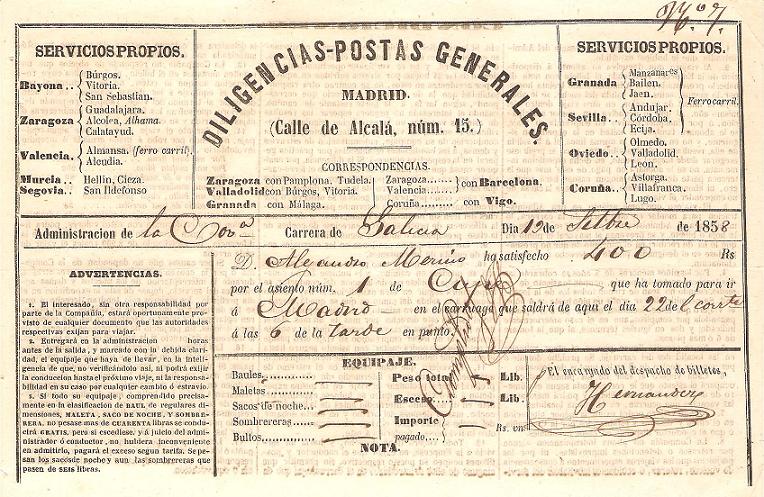 N.º 7.
SERVICIOS PROPIOS.
Bayona .. Búrgos. Vitoria. San Sebastian.
Zaragoza Guadalajara. Alcolea, Alhama. Calatayud.
Valencia.. Almansa. (ferro carril). Alcudia.
Murcia .. Hellin, Cieza.
Segovia.. San Ildefonso
DILIGENCIAS-POSTAS GENERALES.
MADRID.
(Calle de Alcalá, núm. 15.)
CORRESPONDENCIAS.
Zaragoza con Pamplona, Tudela.
Valladolid con Búrgos, Vitoria.
Granada con Málaga.
Zaragoza...... Valencia...... con Barcelona.
Coruña......... con Vigo.
SERVICIOS PROPIOS.
Granada Manzanares Bailen. Jaen.
Sevilla.. Andujar. Córdoba. Ecija.
Ferrocarril.
Oviedo .. Olmedo. Valladolid. Leon.
Coruña.. Astorga. Villafranca. Lugo.
Administracion de la Corª Carrera de Galicia Dia 12 de Setbre de 1858
D. Alejandro Merino ha satisfecho 400 Rs
por el asiento núm. 1 de Cupé que ha tomado para ir
á Madrid en el carruage que saldrá de aqui el dia 22 del corrte
á las 6 de la tarde en punto.
ADVERTENCIAS.
1. El interesado, sin otra responsabilidad por
parte de la Compañía, estará oportunamente pro-
visto de cualquier documento que las autoridades
respectivas exijan para viajar.
2. Entregará en la administracion horas
antes de la salida, y marcado con la debida clari-
dad, el equipaje que haya de llevar, en la inteli-
gencia de que, no verificándolo asi, ni podrá exijir
la conduccion hasta el próximo viaje, ni la responsa-
bilidad en su caso por cualquier cambio ó estravio.
3. Si todo su equipaje, comprendido precisa-
mente en la clasificacion de BAUL de regulares di-
mensiones, MALETA, SACO DE NOCHE, Y SOMBRE-
RERA, no pesase mas de CUARENTA libras se condu-
cirá GRATIS, pero si escediese, y á juicio del admi-
nistrador ó conductor, no hubiera inconveniente
en admitirlo, pagará el exceso segun tarifa. Se pe-
san los sacos de noche y aun las sombrereras que
pasen de SEIS libras.
EQUIPAJE.
Baules
Maletas
Sacos de noche...
Sombrereras
Bultos
Peso total Lib.
Esceso Lib.
Importe
pagado.... Rs. vn.
NOTA.
El encargado del despacho de billetes,
Hernandez